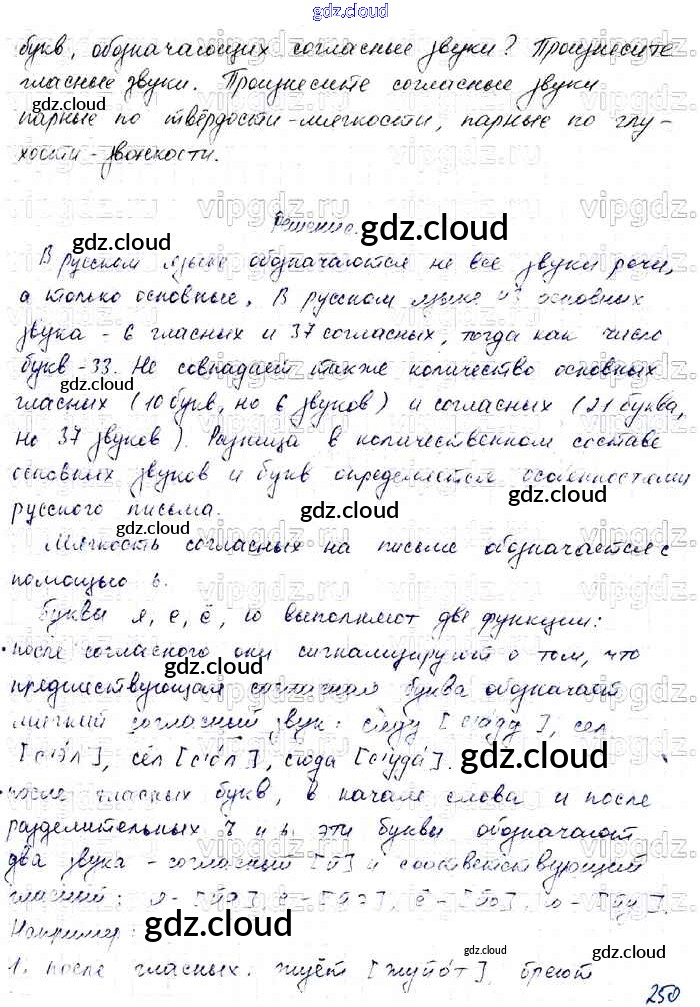 gdz.cloud
букв, обозначающих согласные звуки? Произнесите
гласные звуки. Произнесите согласные звуки
парные по твёрдости-мягкости, парные по глу-
хости-звонкости.
Решение.
В русском языке обозначаются не все звуки речи,
а только основные. В русском языке 43 основных
звука - 6 гласных и 37 согласных, тогда как число
букв - 33. Не совпадает также количество основных
гласных (10 букв, но 6 звуков) и согласных (21 буква,
но 37 звуков). Разница в количественном составе
основных звуков и букв определяется особенностями
русского письма.
Мягкость согласных на письме обозначается с
помощью ь.
Буквы я, е, ё, ю выполняют две функции:
• после согласного они сигнализируют о том, что
предшествующая согласная буква обозначает
мягкий согласный звук: сяду [с'аду], сел
[с'эл], сёл [с'ол], сюда [с'уда].
• после гласных букв, в начале слова и после
разделительных ъ и ь эти буквы обозначают
два звука - согласный [й] и соответствующий
гласный: я - [йа], е - [йэ], ё - [йо], ю - [йу].
Например:
1. после гласных: жуёт [жуйот], бреют
250